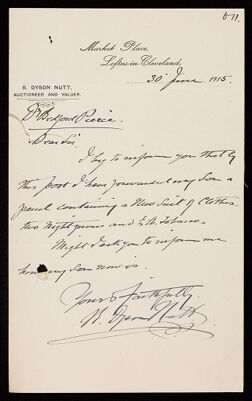 671.
Market Place,
Loftus-in-Cleveland,
30 June 1915.
R. DYSON NUTT,
AUCTIONEER AND VALUER.
Dr Bedford Pierce.
Dear Sir.
I beg to inform you that by
this post I have forwarded my Son a
parcel containing a New Suit of Clothes
two nightgowns and ½ lb Tobacco.
Might I ask you to inform me
how my Son now is.
Yours faithfully.
R. Dyson Nutt